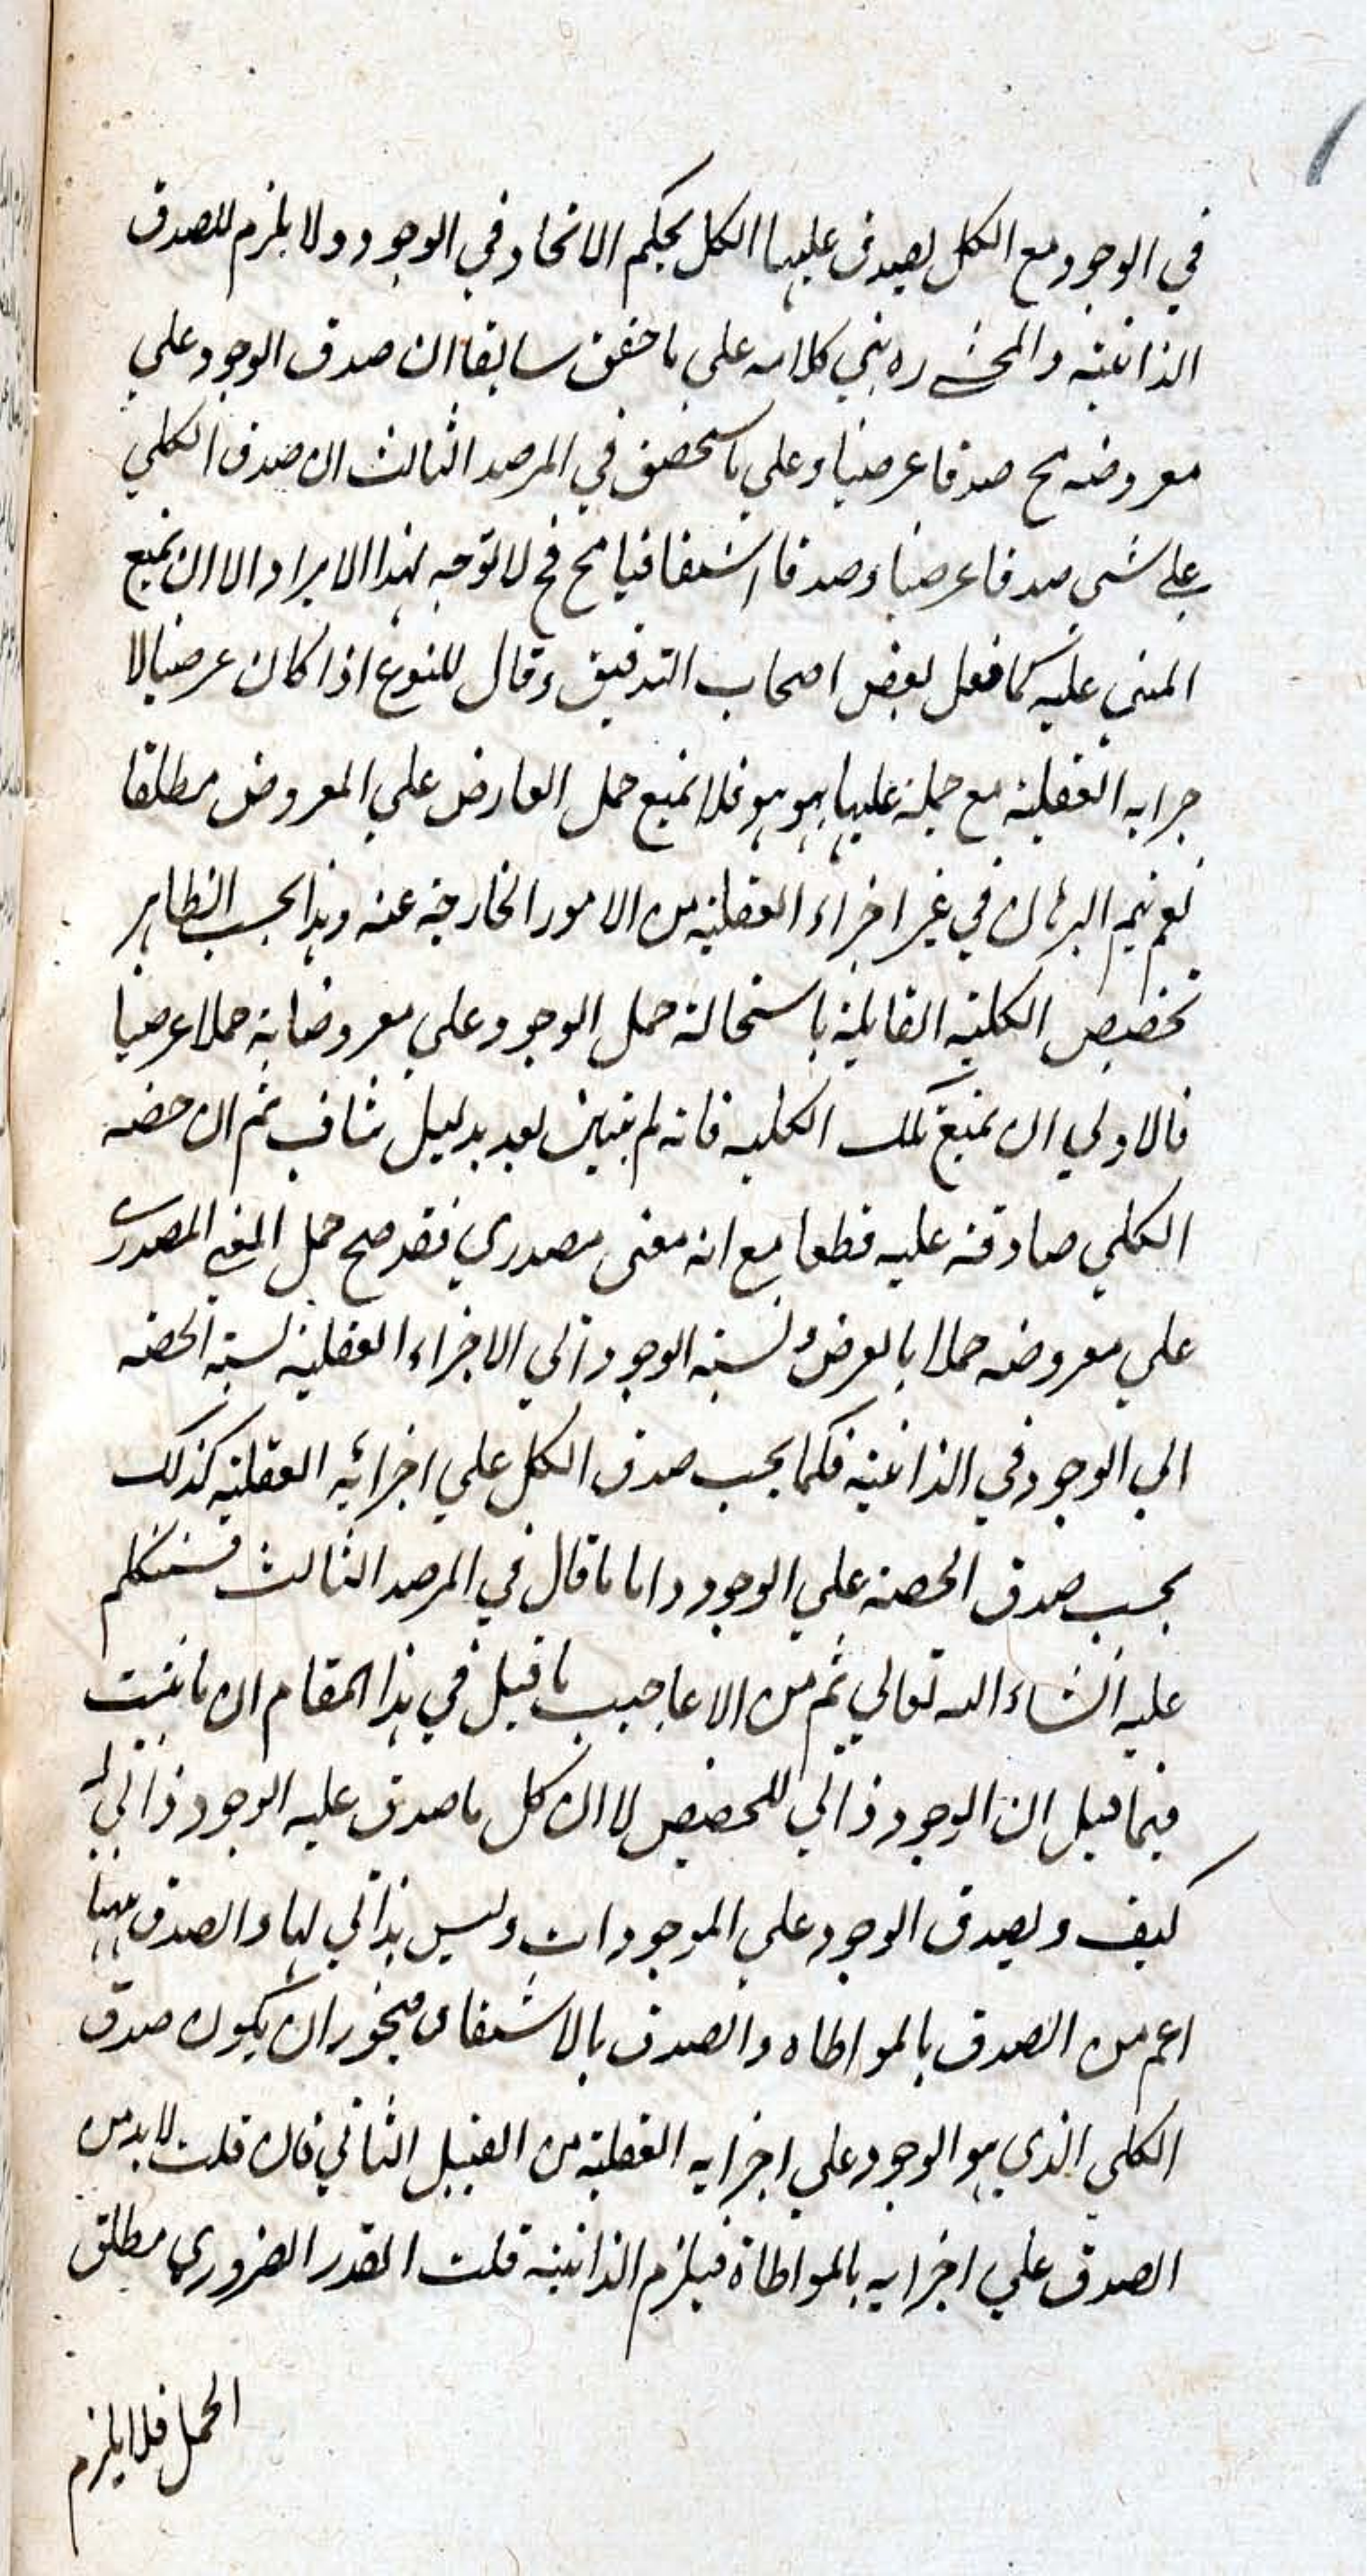 في الوجود مع الكل يصدق عليها الكل بحكم الاتحاد في الوجود ولا يلزم للصدق
الذاتية والمحشے ره بني كلامه علي ما حقق سابقا ان صدق الوجود علي
معروضه مح صدقا عرضيا وعلي ما سيحقق في المرصد الثالث ان صدق الكلي
علے شي صدقا عرضيا وصدقا اشتقاقيا مح فح لا توجه لهذا الايراد الا ان يمنع
المبني عليه كما فعل بعض اصحاب التدقيق وقال للنوع اذا كان عرضيا لا
جزايه العقلية مع حمله عليها بهو هو فلا يمنع حمل العارض علي المعروض مطلقا
نعم يتم البرهان في غير اجزاء العقلية من الامور الخارجية عنه وهذا بحسب الظاهر
تخصيص الكلية القايلة باستحالة حمل الوجود علي معروضاته حملا عرضيا
فالاولي ان يمنع تلك الكلية فانه لم يتبين بعد بدليل شاف ثم ان حصة
الكلي صادقة عليه قطعا مع انه معنى مصدري فقد صح حمل المعنے المصدرے
علي معروضه حملا بالعرض ونسبة الوجود الي الاجزاء العقلية نسبة الحصة
الي الوجود في الذاتية فكما يجب صدق الكل علي اجزائه العقلية كذلك
يجب صدق الحصة علي الوجود واما ما قال في المرصد الثالث فسنتكلم
عليه انشاء الله تعالي ثم من الاعاجيب ما قيل في هذا المقام ان ما يثبت
فيما قيل ان الوجود ذاتي للحصص لا ان كل ما صدق عليه الوجود ذاتي له
كيف ويصدق الوجود علي الموجودات وليس بذاتي لها والصدق ههنا
اعم من الصدق بالمواطاه والصدق بالاشتقاق فيجوز ان يكون صدق
الكلي الذي هو الوجود علي اجزايه العقلية من القبيل الثاني فان قلت لا بد من
الصدق علي اجزايه بالمواطاة فيلزم الذاتية قلت القدر الضروري مطلق
الحمل فلا يلزم